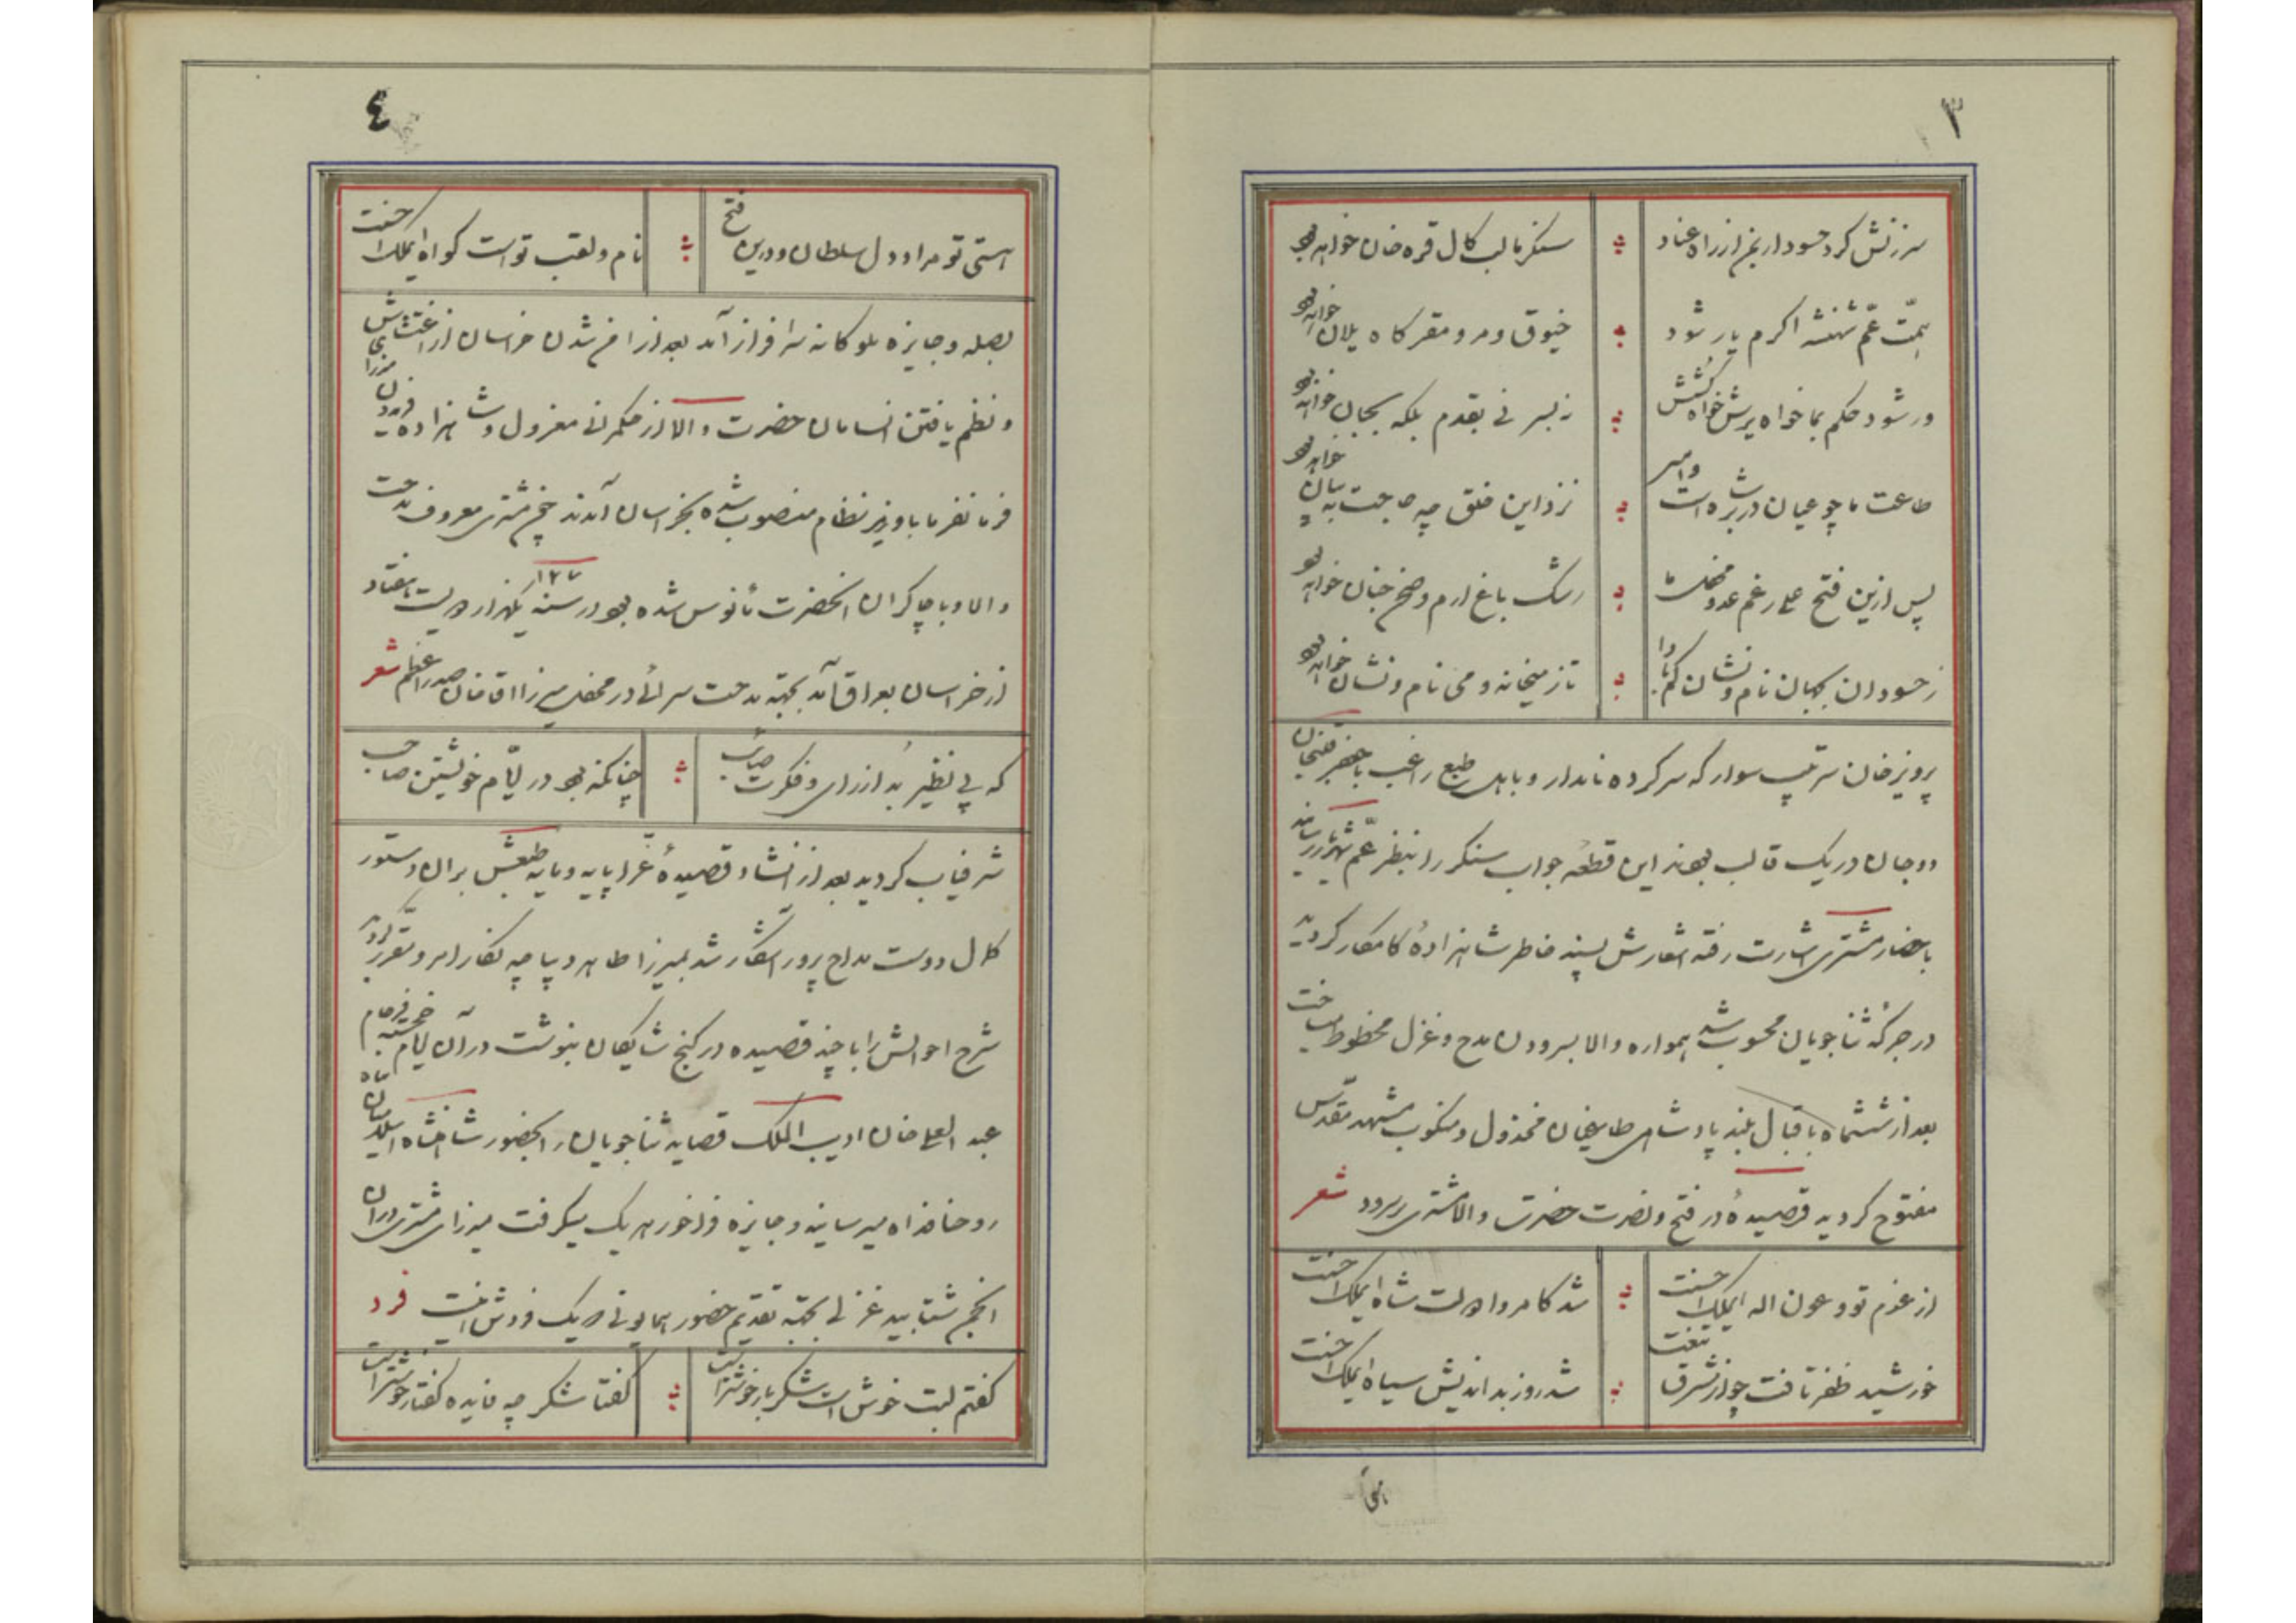 ۳
سرزنش کرد حسود ار بمن از راه عناد
سنگر ما لب کال قره خان خواهد بود
همّت عمّ شهنشه اگرم یار شود
خیوق و مرو مقر گاه یلان خواهد بود
ور شود حکم بما خواه برش خواه کشش
نه بسر نی بقدم بلکه بجان خواهد بود
طاعت ما چو عیان در بر شاه است و امیر
نزد این خلق چه حاجت به بیان خواهد بود
پس ازین فتح علی رغم عدو محفل ما
رشک باغ ارم و صحن جنان خواهد بود
ز حسودان بجهان نام و نشان گم بادا
تا ز میخانه و می نام و نشان خواهد بود
پرویز خان سرتیپ سوار که سرکرده نامدار و باهل طبع راغب با خضر
دو جان در یک قالب بودند این قطعه جواب سنگر را بنظر عمّ رسانید
باحضار مشتری اشارت رفته اشعارش پسند خاطر شاهزادهٔ کامکار گردید
در جرگهٔ ثناجویان محسوب شد همواره والا بسرودن مدح و غزل محظوظ میساخت
بعد از ششماه باقبال بلند پادشاهی طایفهٔ خان مخذول و منکوب مشهد مقدّس
مفتوح گردید قصیدهٔ در فتح و نصرت حضرت والا مشتری بسرود شعر
از عزم تو و عون اله ایملک احسنت
شد کامروا دولت شاه ایملک احسنت
خورشید ظفر تافت چو از مشرق تیغت
شد روز بداندیش سیاه ایملک احسنت
٤
استی تو مراد دل سلطان و درین فتح
نام و لقب تو است گواه ایملک احسنت
بصله و جایزه ملوکانه سرافراز آمد بعد از رام شدن خراسان از اغتشاش
و نظم یافتن انسامان حضرت والا از حکمرانی معزول و شاهزاده فریدون میرزا
فرمانفرما با وزیر نظام منصوب شده بخراسان آمدند چون مشتری معروف خدمت
والا و با چاکران انحضرت مأنوس شده بود در سنه ۱۲۷۰ یکهزار دویست هفتاد
از خراسان بعراق آمد بجهة مدحت سرائی در محفل میرزا اقاخان صدر اعظم شعر
که بی نظیر بُد از رای و فکرت صائب
چنانکه بود در ایّام خویشتن صاحب
شرفیاب گردید بعد از انشاد قصیدهٔ غرّا پایه و مایه طبعش بر ان دستور
کمال دوست مداح پرور آشکار شد بمیرزا طاهر دیباچه نگار امر و مقرر گردید
شرح احوالش را با چند قصیده در گنج شایگان بنوشت در آن ایام خجسته فرجام
عبد العلی خان ادیب الملک قصاید ثناجویان را بحضور شاهنشاه
روحنا فداه میرسانید و جایزه فراخور هر یک میگرفت میرزای مشتری دران
انجمن شتابید غزلی بجهة تقدیم حضور همایونی که یک فردش اینست فرد
گفتم لبت خوش است شکر یار خوشتر است
گفتا شکر چه فایده گفتار خوشتر است